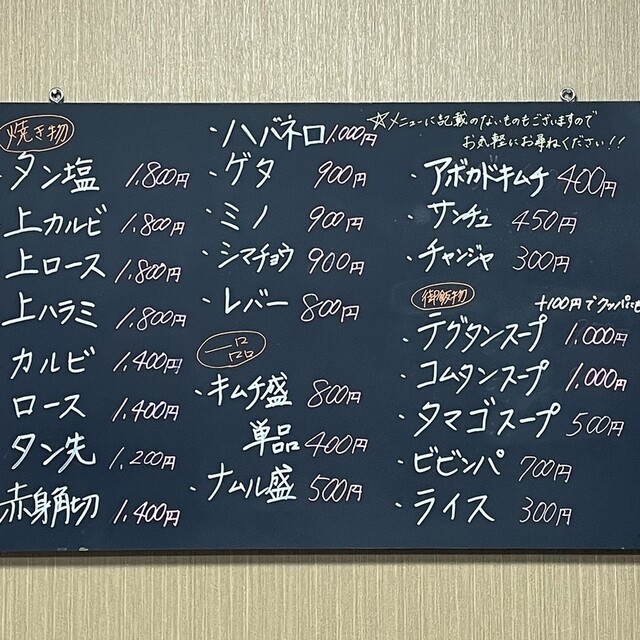 焼き物
・タン塩 1,800円
上カルビ 1,800円
上ロース 1,800円
上ハラミ 1,800円
カルビ 1,400円
ロース 1,400円
タン先 1,200円
赤身角切 1,400円
・ハバネロ 1,000円
・ゲタ 900円
・ミノ 900円
・シマチョウ 900円
・レバー 800円
一品
・キムチ盛 800円
単品 400円
・ナムル盛 500円
☆メニューに記載のないものもございますので
お気軽にお尋ねください!!
・アボカドキムチ 400円
・サンチュ 450円
・チャンジャ 300円
御飯物
+100円でクッパにも
・テグタンスープ 1,000円
・コムタンスープ 1,000円
・タマゴスープ 500円
・ビビンパ 700円
・ライス 300円